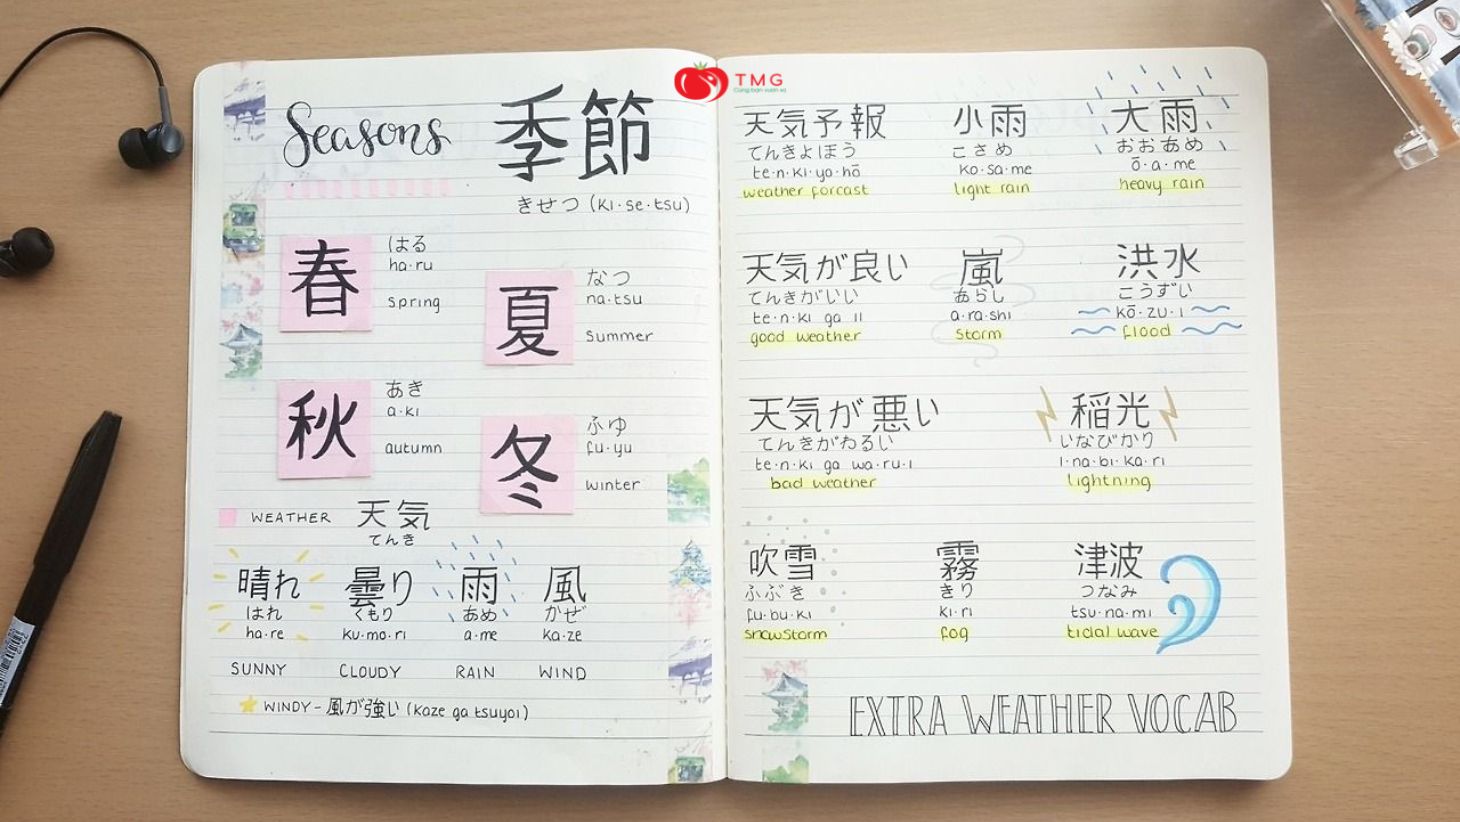 TMG
Seasons
季節
きせつ (ki・se・tsu)
春
はる
ha・ru
spring
夏
なつ
na・tsu
summer
秋
あき
a・ki
autumn
冬
ふゆ
fu・yu
winter
WEATHER 天気
てんき
晴れ 曇り 雨 風
はれ くもり あめ かぜ
ha・re ku・mo・ri a・me ka・ze
SUNNY CLOUDY RAIN WIND
WINDY - 風が強い (kaze ga tsuyoi)
天気予報 小雨 大雨
てんきよほう こさめ おおあめ
te・n・ki・yo・hō ko・sa・me ō・a・me
weather forcast light rain heavy rain
天気が良い 嵐 洪水
てんきがいい あらし こうずい
te・n・ki ga ii a・ra・shi kō・zu・i
good weather storm flood
天気が悪い 稲光
てんきがわるい いなびかり
te・n・ki ga wa・ru・i i・na・bi・ka・ri
bad weather lightning
吹雪 霧 津波
ふぶき きり つなみ
fu・bu・ki ki・ri tsu・na・mi
snowstorm fog tidal wave
EXTRA WEATHER VOCAB